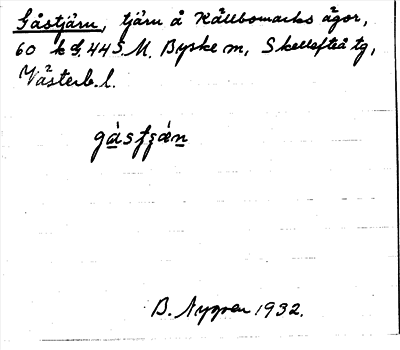 Gåstjärn, tjärn å Källbomarks ägor,
60 k S. M. Byske sn, Skellefteå tg,
Västerb. l.
B. Nygren 1932.